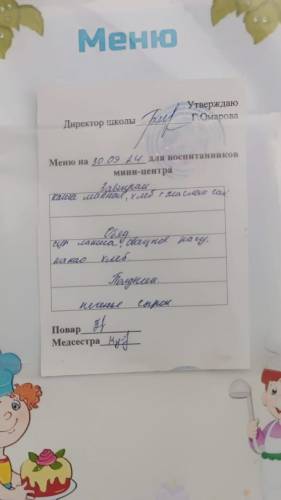 Меню
Утверждаю
Директор школы Г. Омарова
Меню на 30.09.24 для воспитанников
мини-центра
Завтрак
каша манная, хлеб с маслом чай
Обед
суп лапша, овощное рагу,
какао хлеб
Полдник
печенье сырок
Повар
Медсестра